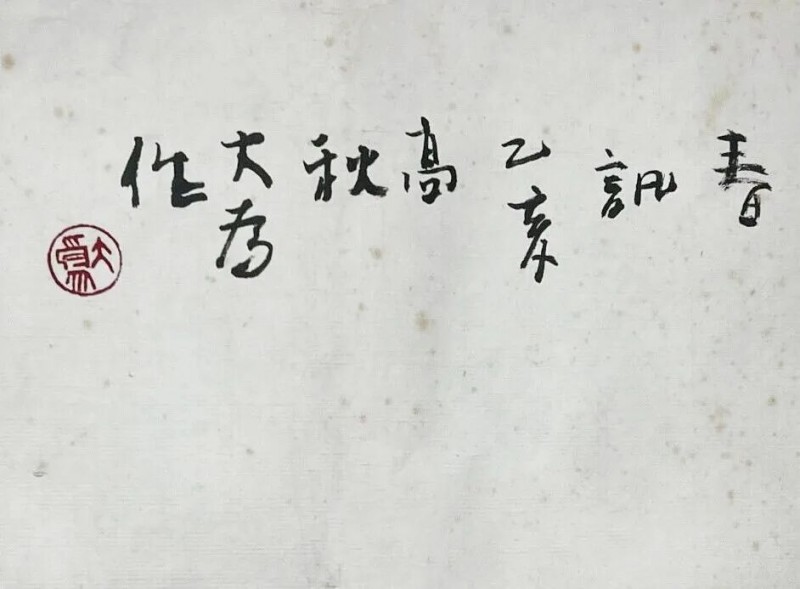 春
訊
乙亥
高
秋
大為
作
大為